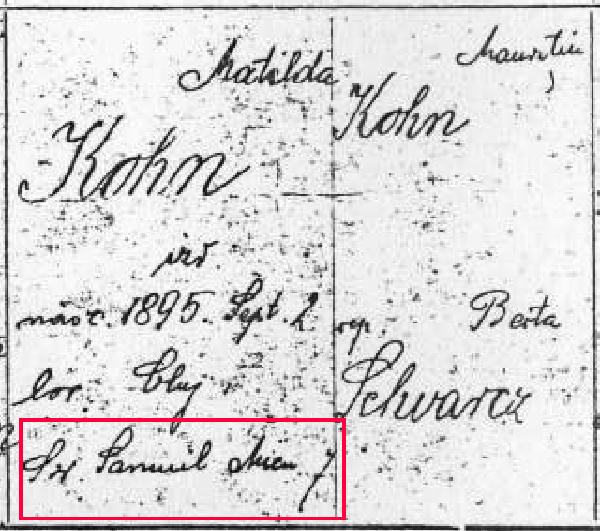 Matilda
Kohn
izr.
născ. 1895. Sept. 2
loc. Cluj
Str. Samuil Micu 7
Mauritiu
Kohn
rep.
Berta
Schwarcz